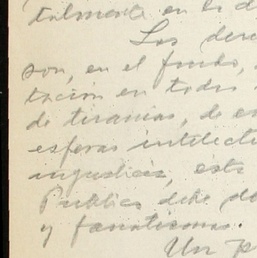 talmente en la d
Las dere
son, en el fondo,
tación en todos
de tiranías, de es
esferas intelect
injusticia, esta
Pública debe de
y fanatismos.
Un p